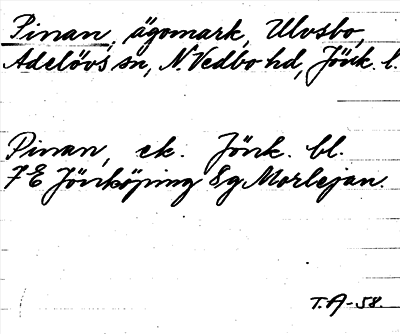 Pinan, ägomark, Ulvsbo,
Adelövs sn, N. Vedbo hd, Jönk. l.
Pinan, ek. Jönk. bl.
7 E Jönköping Sg Morlejan.
T.A-58.